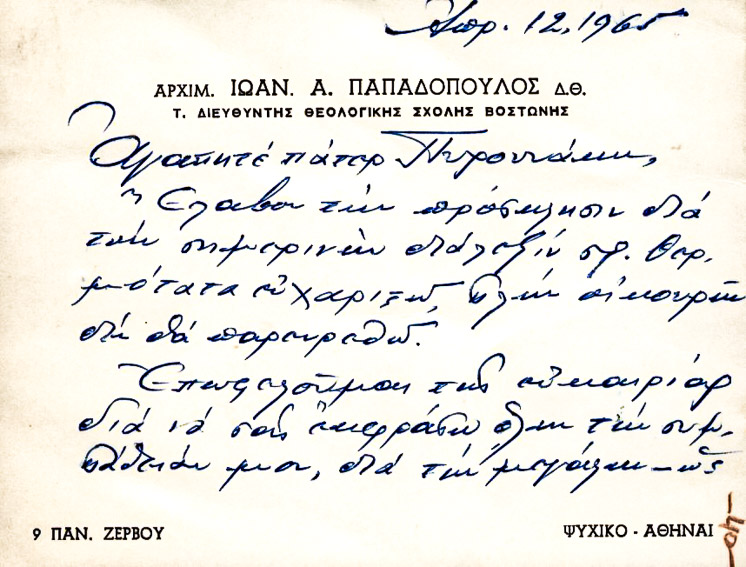 Ἀπρ. 12, 1965
ΑΡΧΙΜ. ΙΩΑΝ. Α. ΠΑΠΑΔΟΠΟΥΛΟΣ Δ.Θ.
Τ. ΔΙΕΥΘΥΝΤΗΣ ΘΕΟΛΟΓΙΚΗΣ ΣΧΟΛΗΣ ΒΟΣΤΩΝΗΣ
Ἀγαπητέ πάτερ Πυρουνάκη,
Ἔλαβον τήν πρόσκλησιν διά
τήν σημερινήν διάλεξίν σας. Θερ-
μότατα εὐχαριστῶ, πλήν
δέν θά παρευρεθῶ.
Ἐπωφελοῦμαι τῆς εὐκαιρίας
διά νά σᾶς ἐκφράσω ὅλην τήν συμ-
πάθειάν μου, διά τήν μεγάλην – ὡς
9 ΠΑΝ. ΖΕΡΒΟΥ
ΨΥΧΙΚΟ - ΑΘΗΝΑΙ